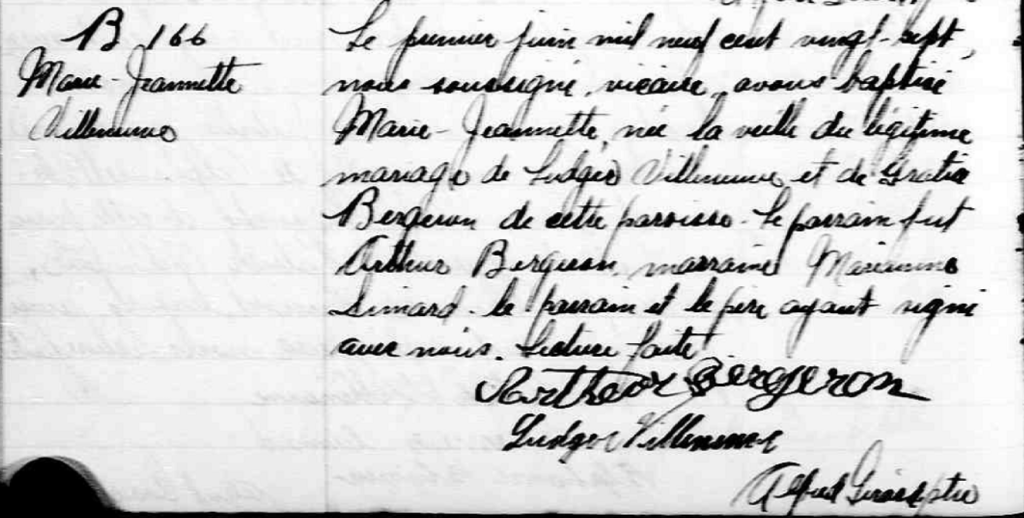 B 166
Marie-Jeannette
Villeneuve
Le premier juin mil neuf cent vingt-sept,
nous soussigné, vicaire, avons baptisé
Marie-Jeannette, née la veille du légitime
mariage de Ludger Villeneuve et de Gratia
Bergeron de cette paroisse. Le parrain fut
Arthur Bergeron, marraine Marianne
Simard. le parrain et le père ayant signé
avec nous. Lecture faite.
Arthur Bergeron
Ludger Villeneuve
Alfred ptre